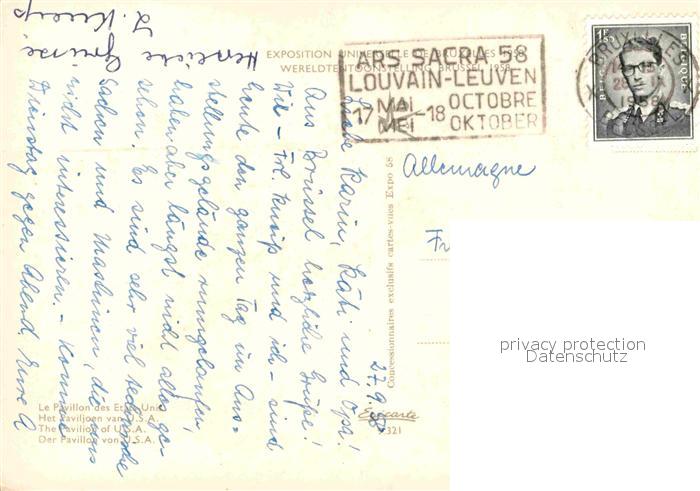 EXPOSITION UNIVERSELLE DE BRUXELLES 1958
WERELDTENTOONSTELLING BRUSSEL 1958
ARS SACRA 58
LOUVAIN-LEUVEN
17 MAI MEI -18 OCTOBRE OKTOBER
BRUXELLES
1958
1F50
BELGIQUE
Allemagne
Fr
27.9.58
Liebe Karin, Käti und Opa!
Aus Brüssel herzliche Grüße!
Wir - Frl. Kneip und ich - sind
heute den ganzen Tag im Aus-
stellungsgelände rumgelaufen,
haben aber längst nicht alles ge-
sehen. Es sind sehr viel technische
Sachen und Maschinen, die uns
nicht interessieren. - Komme
Dienstag gegen Abend. Eure A
Herzliche Grüsse
Concessionnaires exclusifs cartes-vues Expo 58
Le Pavillon des Etats Unis
Het Paviljoen van U.S.A.
The Pavilion of U.S.A.
Der Pavillon von U.S.A.
Egicarte
321
privacy protection
Datenschutz